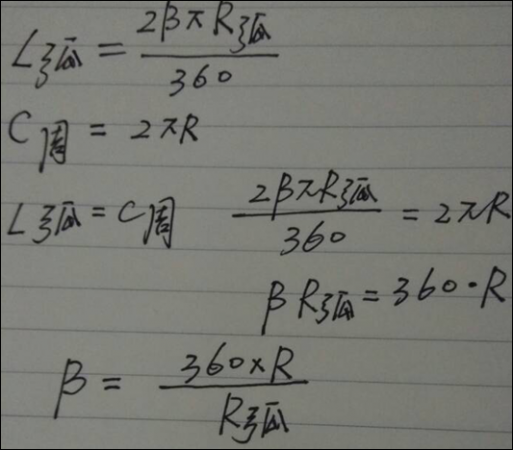 L弧 = 2βπR弧/360
C周 = 2πR
L弧 = C周 2βπR弧/360 = 2πR
βR弧 = 360·R
β = 360×R/R弧